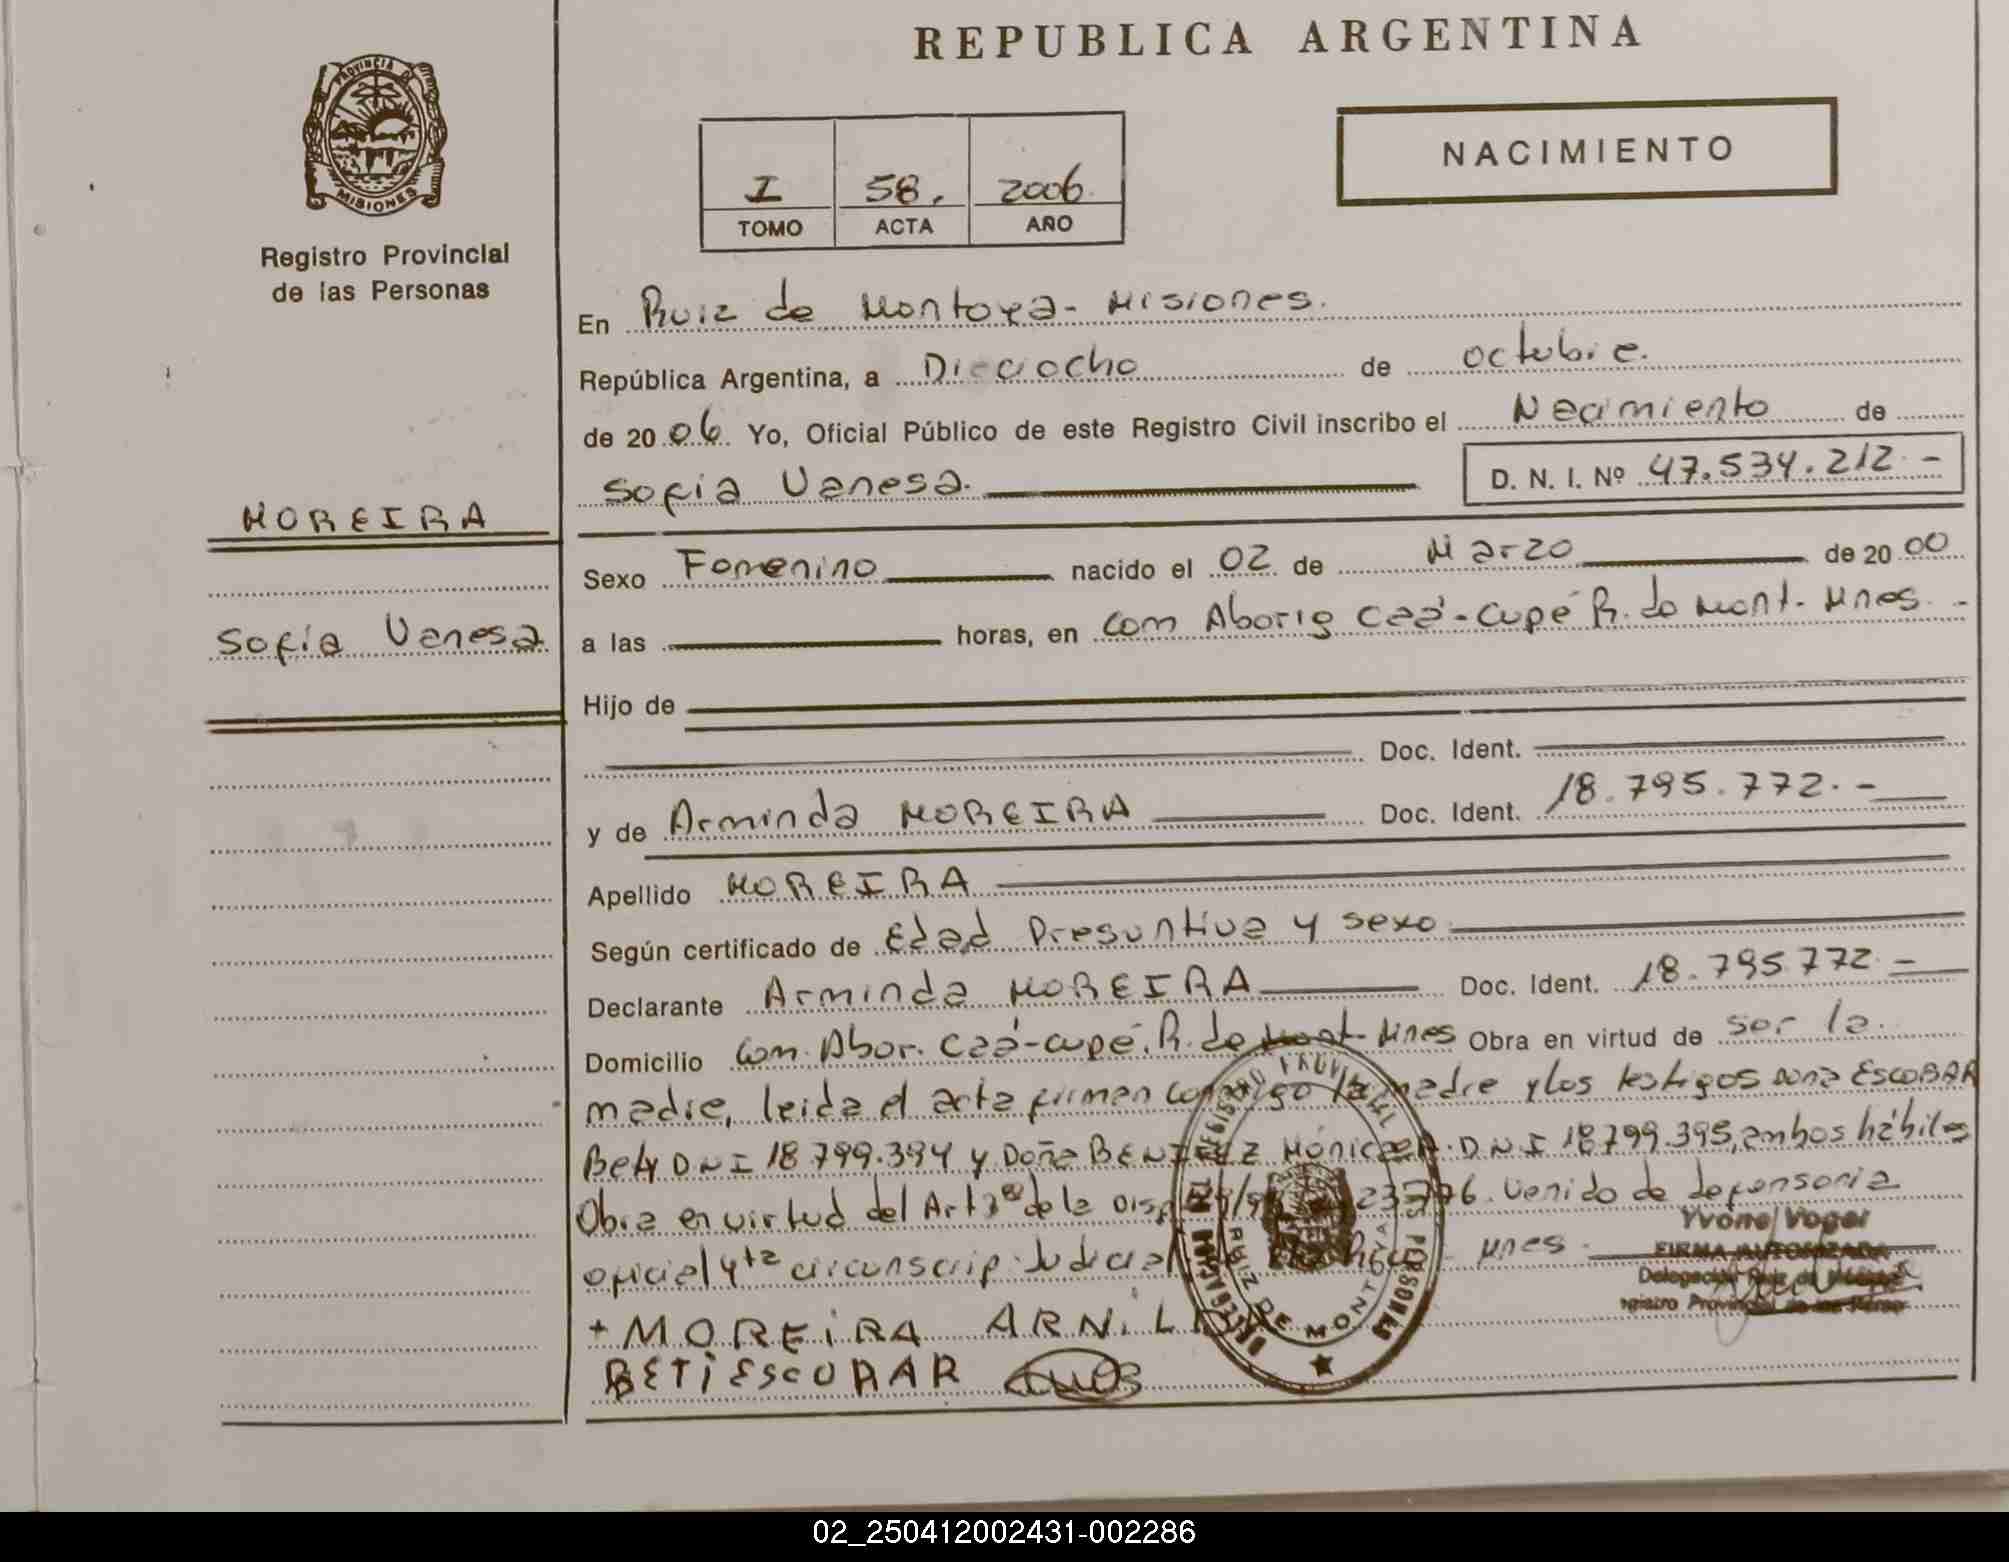 REPUBLICA ARGENTINA
PROVINCIA DE
MISIONES
Registro Provincial
de las Personas
NACIMIENTO
I 58. 2006.
TOMO ACTA AÑO
En Ruiz de Montoya - Misiones.
República Argentina, a Dieciocho de octubre.
de 2006. Yo, Oficial Público de este Registro Civil inscribo el Nacimiento de
Sofia Vanesa. D. N. I. Nº 47.534.212.-
MOREIRA
Sofía Vanesa
Sexo Femenino nacido el 02 de Marzo de 2000
a las horas, en Com Aborig Caá-Cupé R. de Mont- Mnes. -
Hijo de
Doc. Ident.
y de Arminda MOREIRA Doc. Ident. 18.795.772.-
Apellido MOREIRA
Según certificado de Edad Presuntiva y sexo
Declarante Arminda MOREIRA Doc. Ident. 18.795.772.-
Domicilio Com. Abor. Caá-cupé. R. de Mont- Mnes Obra en virtud de ser la
madre, leida el acta firman conmigo la madre y los testigos doña ESCOBAR
Bety DNI 18 799.394 y Doña BENITEZ Mónica A. DNI 18799.395, ambos hábiles
Obra en virtud del Art de la Disp Venido de defensoria
oficial 4ta circunscrip. Judicial Mnes -
+ MOREiRA ARNiL
BETi ESCOBAR
REGISTRO PROVINCIAL DE LAS PERSONAS
RUIZ DE MONTOYA
Yvone Vogel
FIRMA AUTORIZADA
Delegación Ruiz de Montoya
Registro Provincial de las Personas
02_250412002431-002286